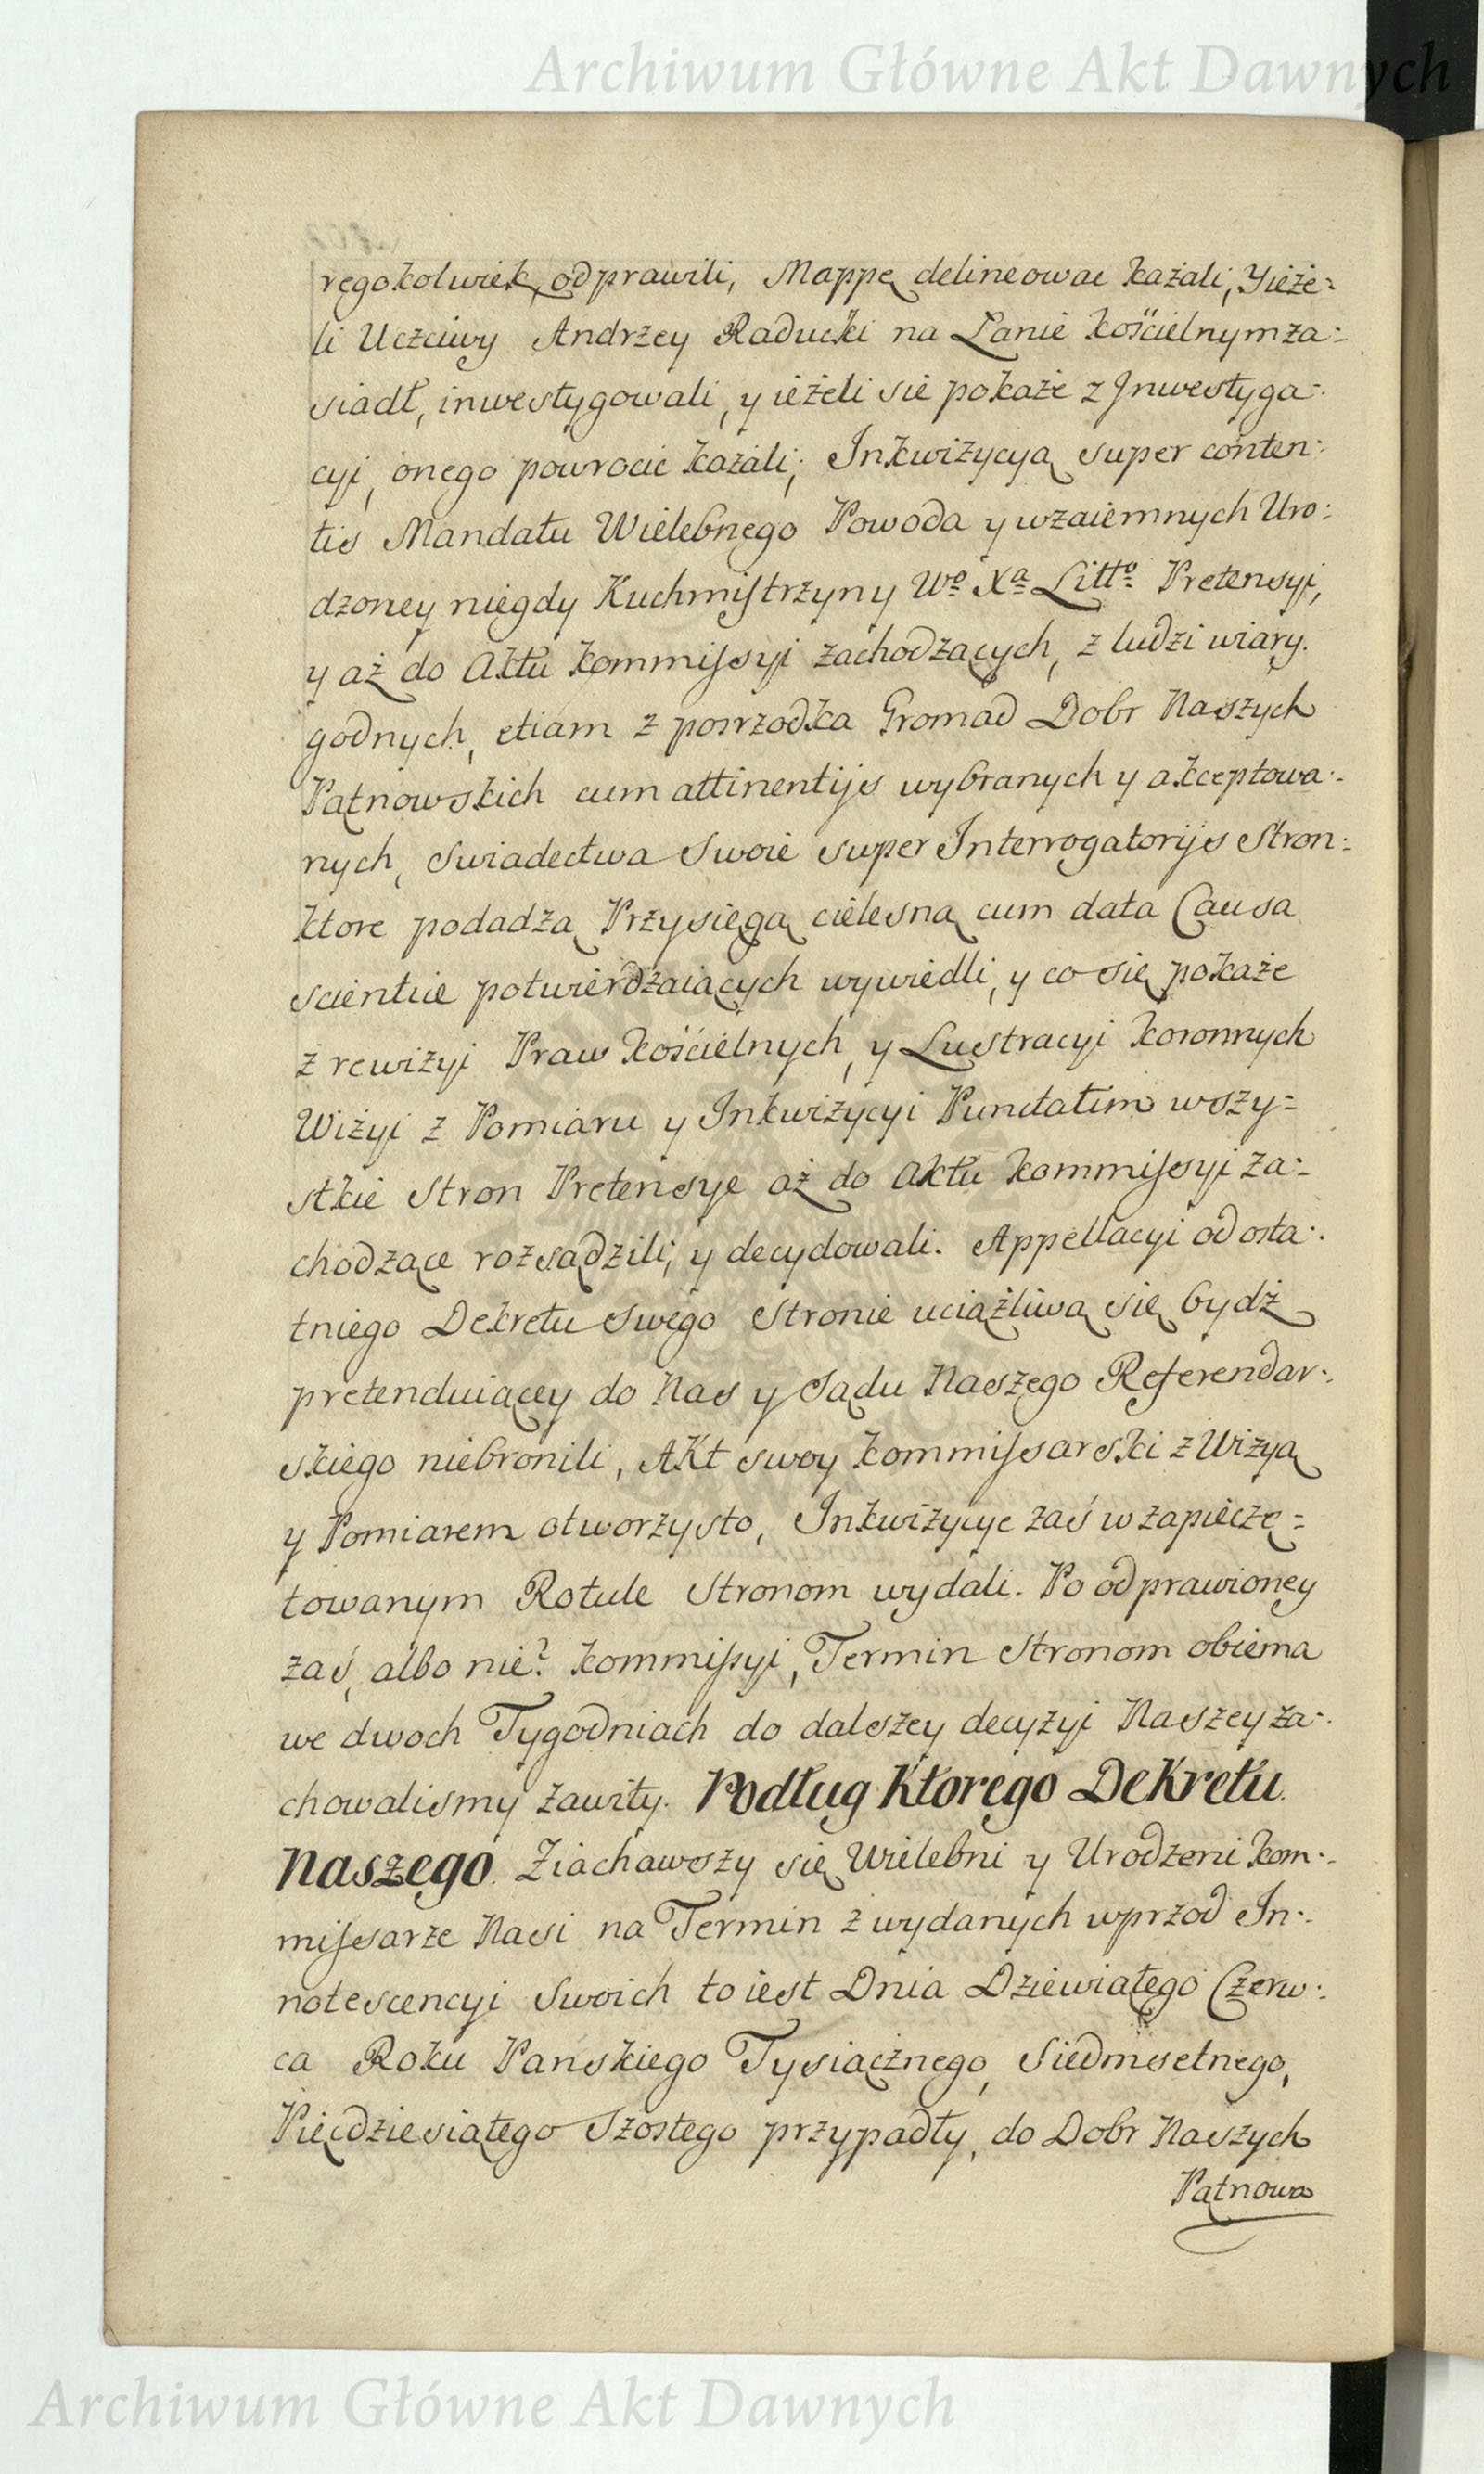 Archiwum Główne Akt Dawnych
regokolwiek odprawili, Mappę delineowac każali, Yieże=
li Uczciwy Andrzey Raducki na Łanie kościelnym za=
siadł, inwestygowali, y ieżeli sie pokaże z Jnwestyga=
cyi, onego powrocic każali; Inkwiżycyą super conten=
tis Mandatu Wielebnego Powoda y wzaiemnych Uro=
dzoney niegdy Kuchmistrzyny Wo Xa Litto Pretensyi,
y aż do Aktu kommissyi zachodzących, z ludzi wiary
godnych, etiam z posrzodka Gromad Dobr Naszych
Pątnowskich cum attinentijs wybranych y akceptowa=
nych, swiadectwa swoie super Interrogatorijs stron=
ktore podadzą Przysięgą cielesną cum data Causa
scientiæ potwierdzaiących wywiedli, y co się pokaże
z rewizyi Praw kościelnych, y Lustracyi koronnych
Wiżyi z Pomiaru y Inkwiżycyi Punctatim wszy=
stkie stron Pretensye aż do Aktu kommissyi za=
chodzące rozsądzili, y decydowali. Appellacyi od osta=
tniego Dekretu swego stronie uciążliwą się bydż
pretenduiącey do Nas y Sądu Naszego Referendar=
skiego niebronili, AKt swoy kommissarski z Wizyą
y Pomiarem otworzysto, Inkwiżycye zaś w zapieczę=
towanym Rotule stronom wydali. Po odprawioney
zaś, albo nie? kommissyi, Termin stronom obiema
we dwoch Tygodniach do dalszey decyżyi Naszey za=
chowalismy zawity. Podług Ktorego DeKretu
Naszego. Ziachawszy się Wielebni y Urodzeni kom=
missarze Nasi na Termin z wydanych wprzod In=
notescencyi swoich to iest Dnia Dziewiątego Czerw=
ca Roku Panskiego Tysiącznego, Siedmsetnego,
Pięcdziesiątego Szostego przypadły, do Dobr Naszych
Pątnowa
Archiwum Główne Akt Dawnych